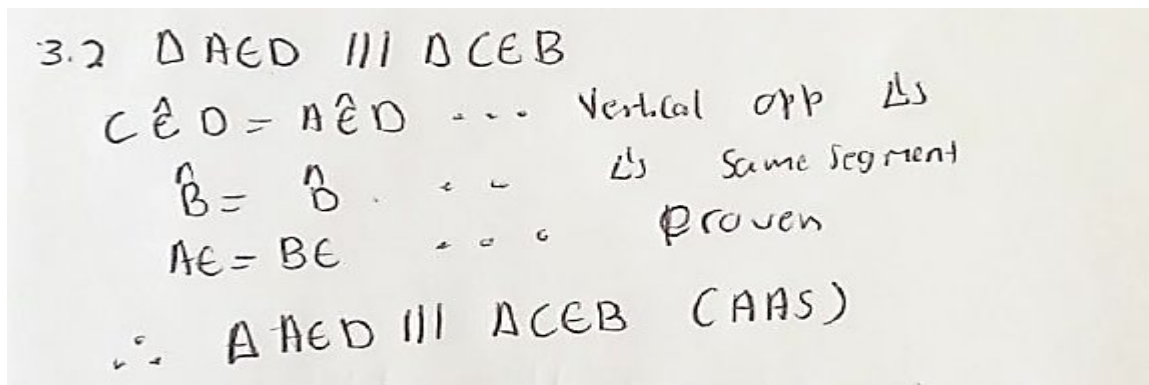 3.2 Δ AED /// Δ CEB
CÊD = AÊD ... Vertical opp ∠s
B̂ = D̂ ... ∠s same segment
AE = BE ... proven
∴ Δ AED /// ΔCEB (AAS)